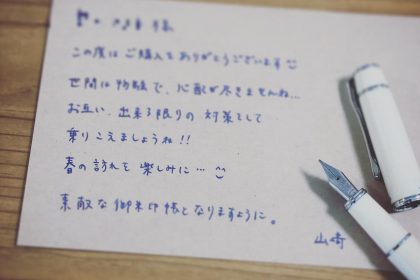 様
この度はご購入をありがとうございます
世間は物騒で、心配が尽きませんね…
お互い、出来る限りの対策をして
乗りこえましょうね!!
春の訪れを楽しみに…
素敵な御朱印帳となりますように。
山崎